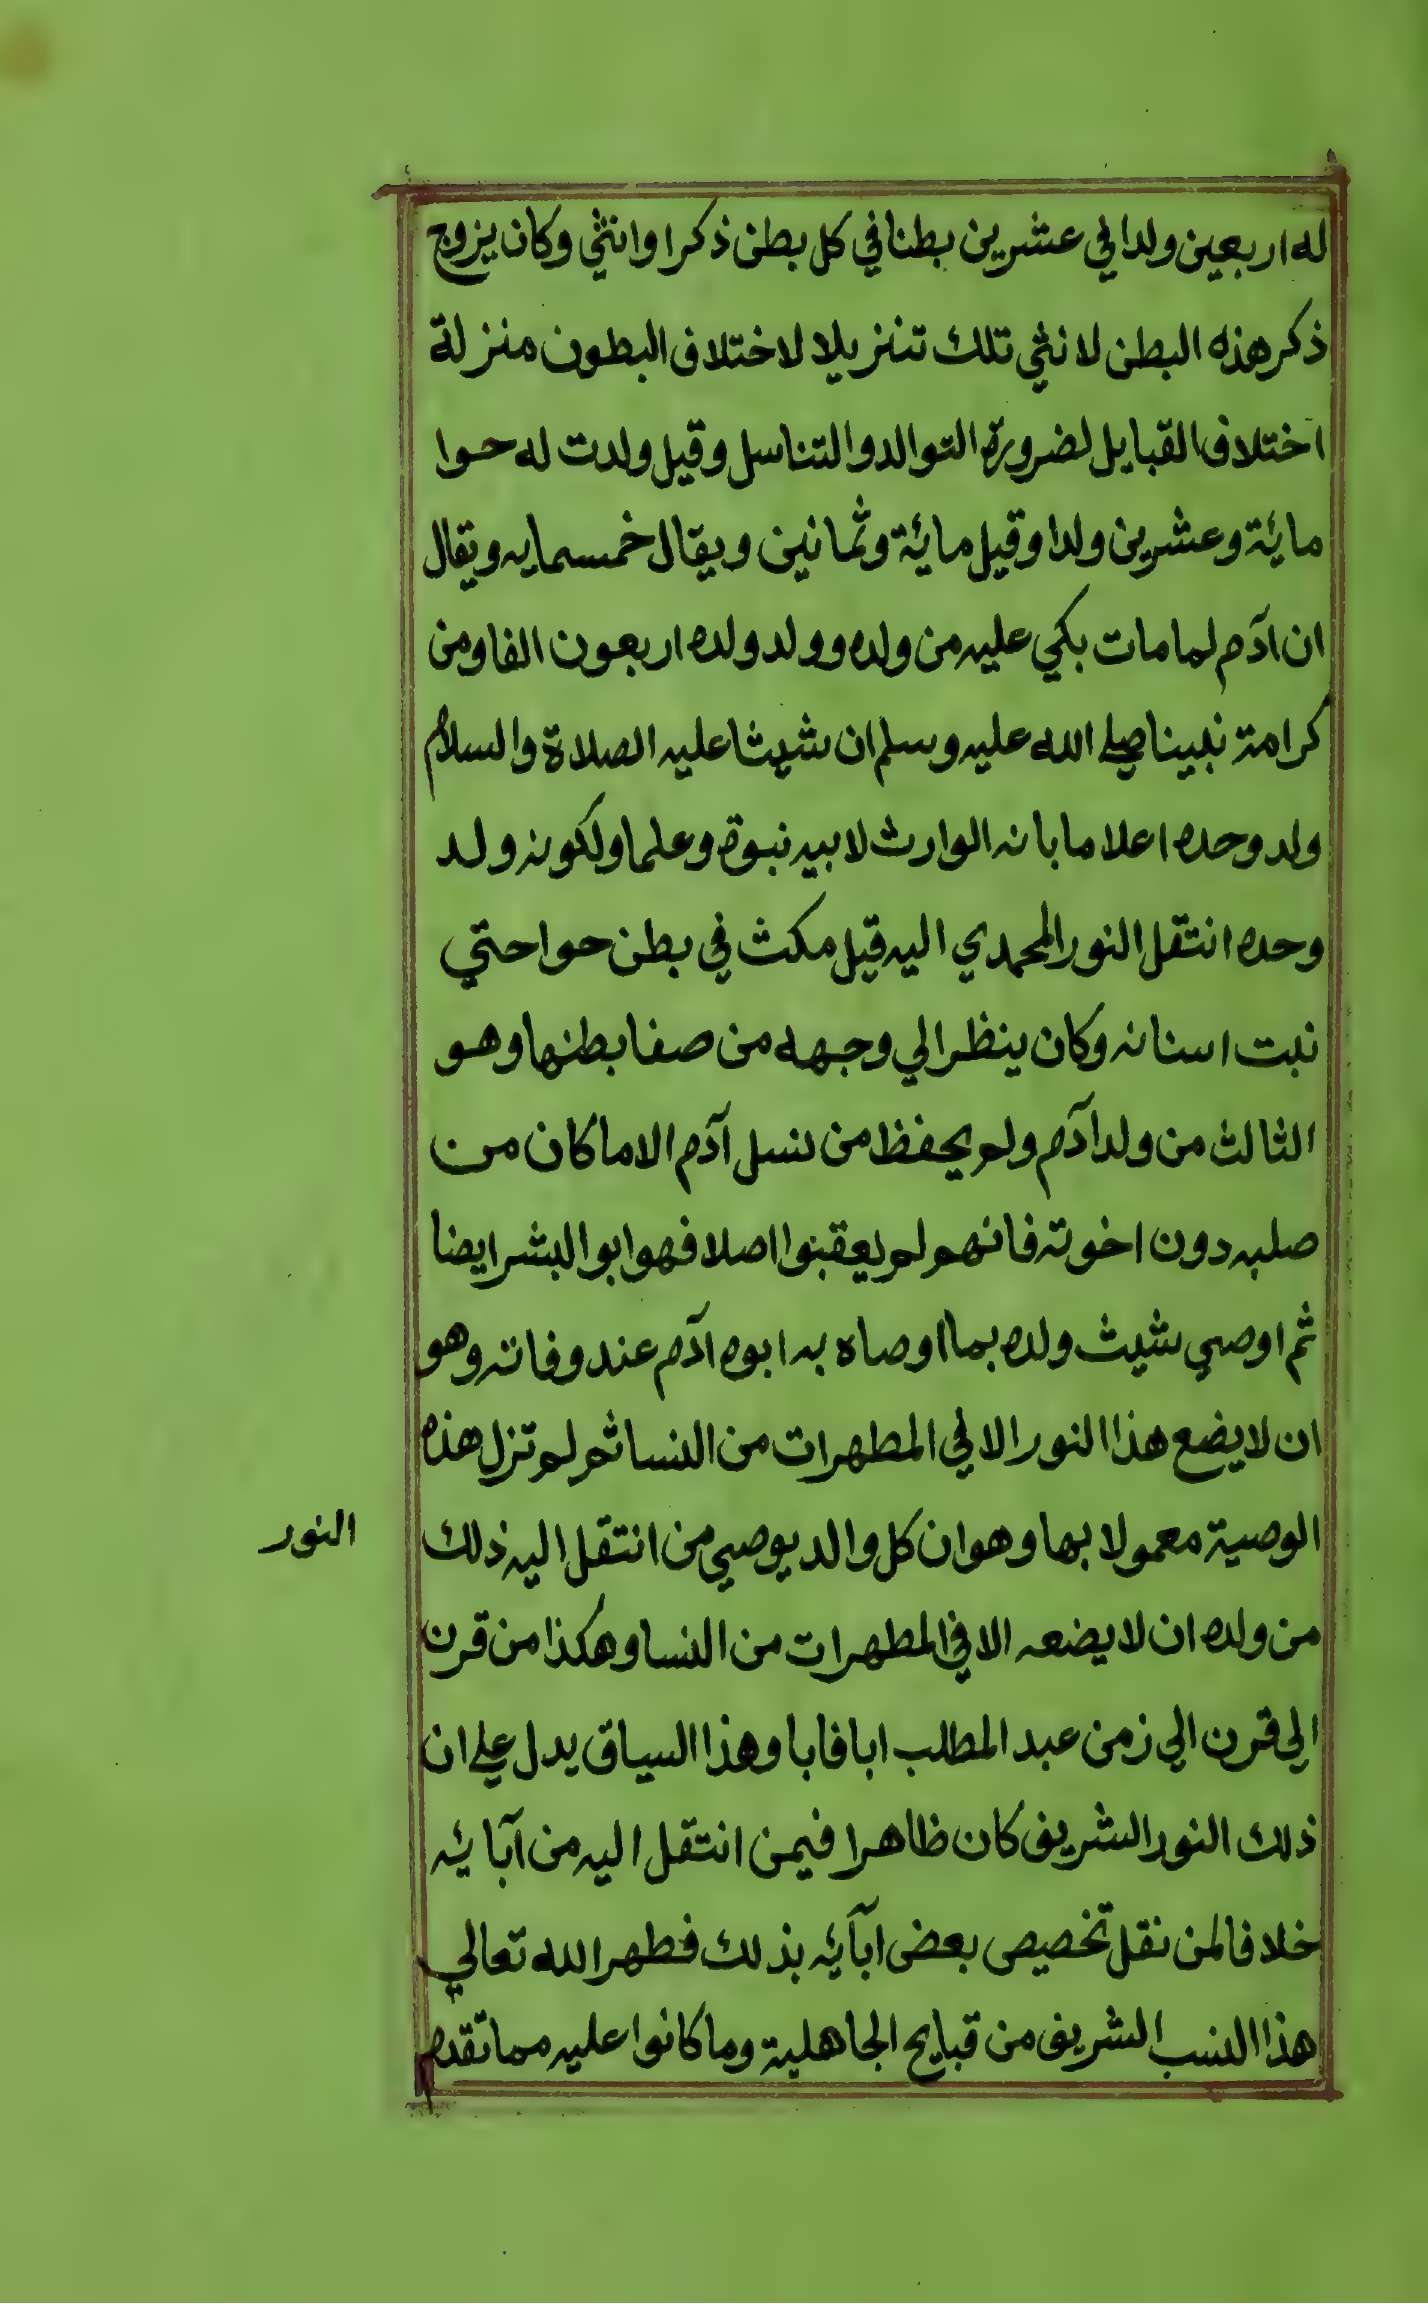 له اربعين ولدا في عشرين بطنا في كل بطن ذكرا وانثي وكان يزوج
ذكر هذه البطن لانثي تلك تننزيلا لاختلاف البطون منزلة
اختلاف القبايل لضرورة التوالد والتناسل وقيل ولدت له حوا
مايئة وعشرين ولدا وقيل مايئة وثمانين ويقال خمسمايه ويقال
ان اآدم لما مات بكي عليه من ولده وولد ولده اربعون الفا ومن
كرامة نبينا صلي الله عليه وسلم ان شيثا عليه الصلاة والسلام
ولد وحده اعلاما بانه الوارث لابيه نبوة وعلما ولكونه ولد
وحده انتقل النور المحمدي اليه قيل مكث في بطن حوا حتي
نبت اسنانه وكان ينظر الي وجهه من صفا بطنها وهو
الثالث من ولد اآدم ولم يحفظ من نسل اآدم الا ما كان من
صلبه دون اخوته فانهم لم يعقبوا اصلا فهو ابو البشر ايضا
ثم اوصي شيث ولده بما اوصاه به ابوه اآدم عند وفاته وهو
ان لا يضع هذا النور الا في المطهرات من النسا ثم لم تزل هذه
الوصية معمولا بها وهو ان كل والد يوصي من انتقل اليه ذلك
النور
من ولده ان لا يضعه الا في المطهرات من النسا وهكذا من قرن
الي قرن الي زمن عبد المطلب ابا فابا وهذا السياق يدل علي ان
ذلك النور الشريف كان ظاهرا فيمن انتقل اليه من اآبايئه
خلافا لمن نقل تخصيص بعض اآبايئه بذلك فطهر الله تعالي
هذا النسب الشريف من قبايح الجاهلية وما كانوا عليه مما تقدم